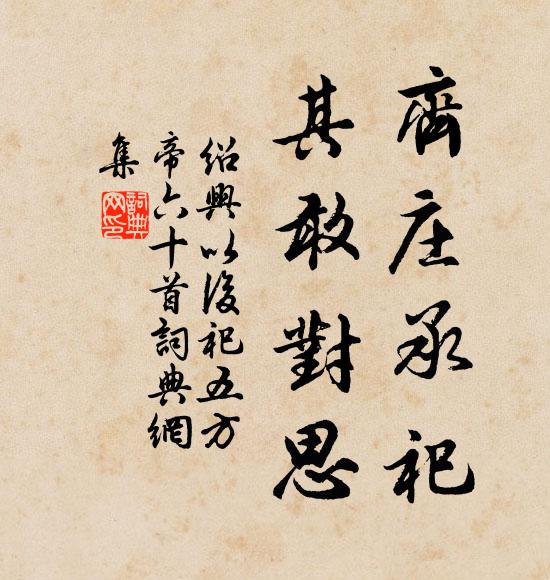 齊庄承祀
其敢對思
紹興以後祀五方
帝六十首詞典網
集
詞典
网印